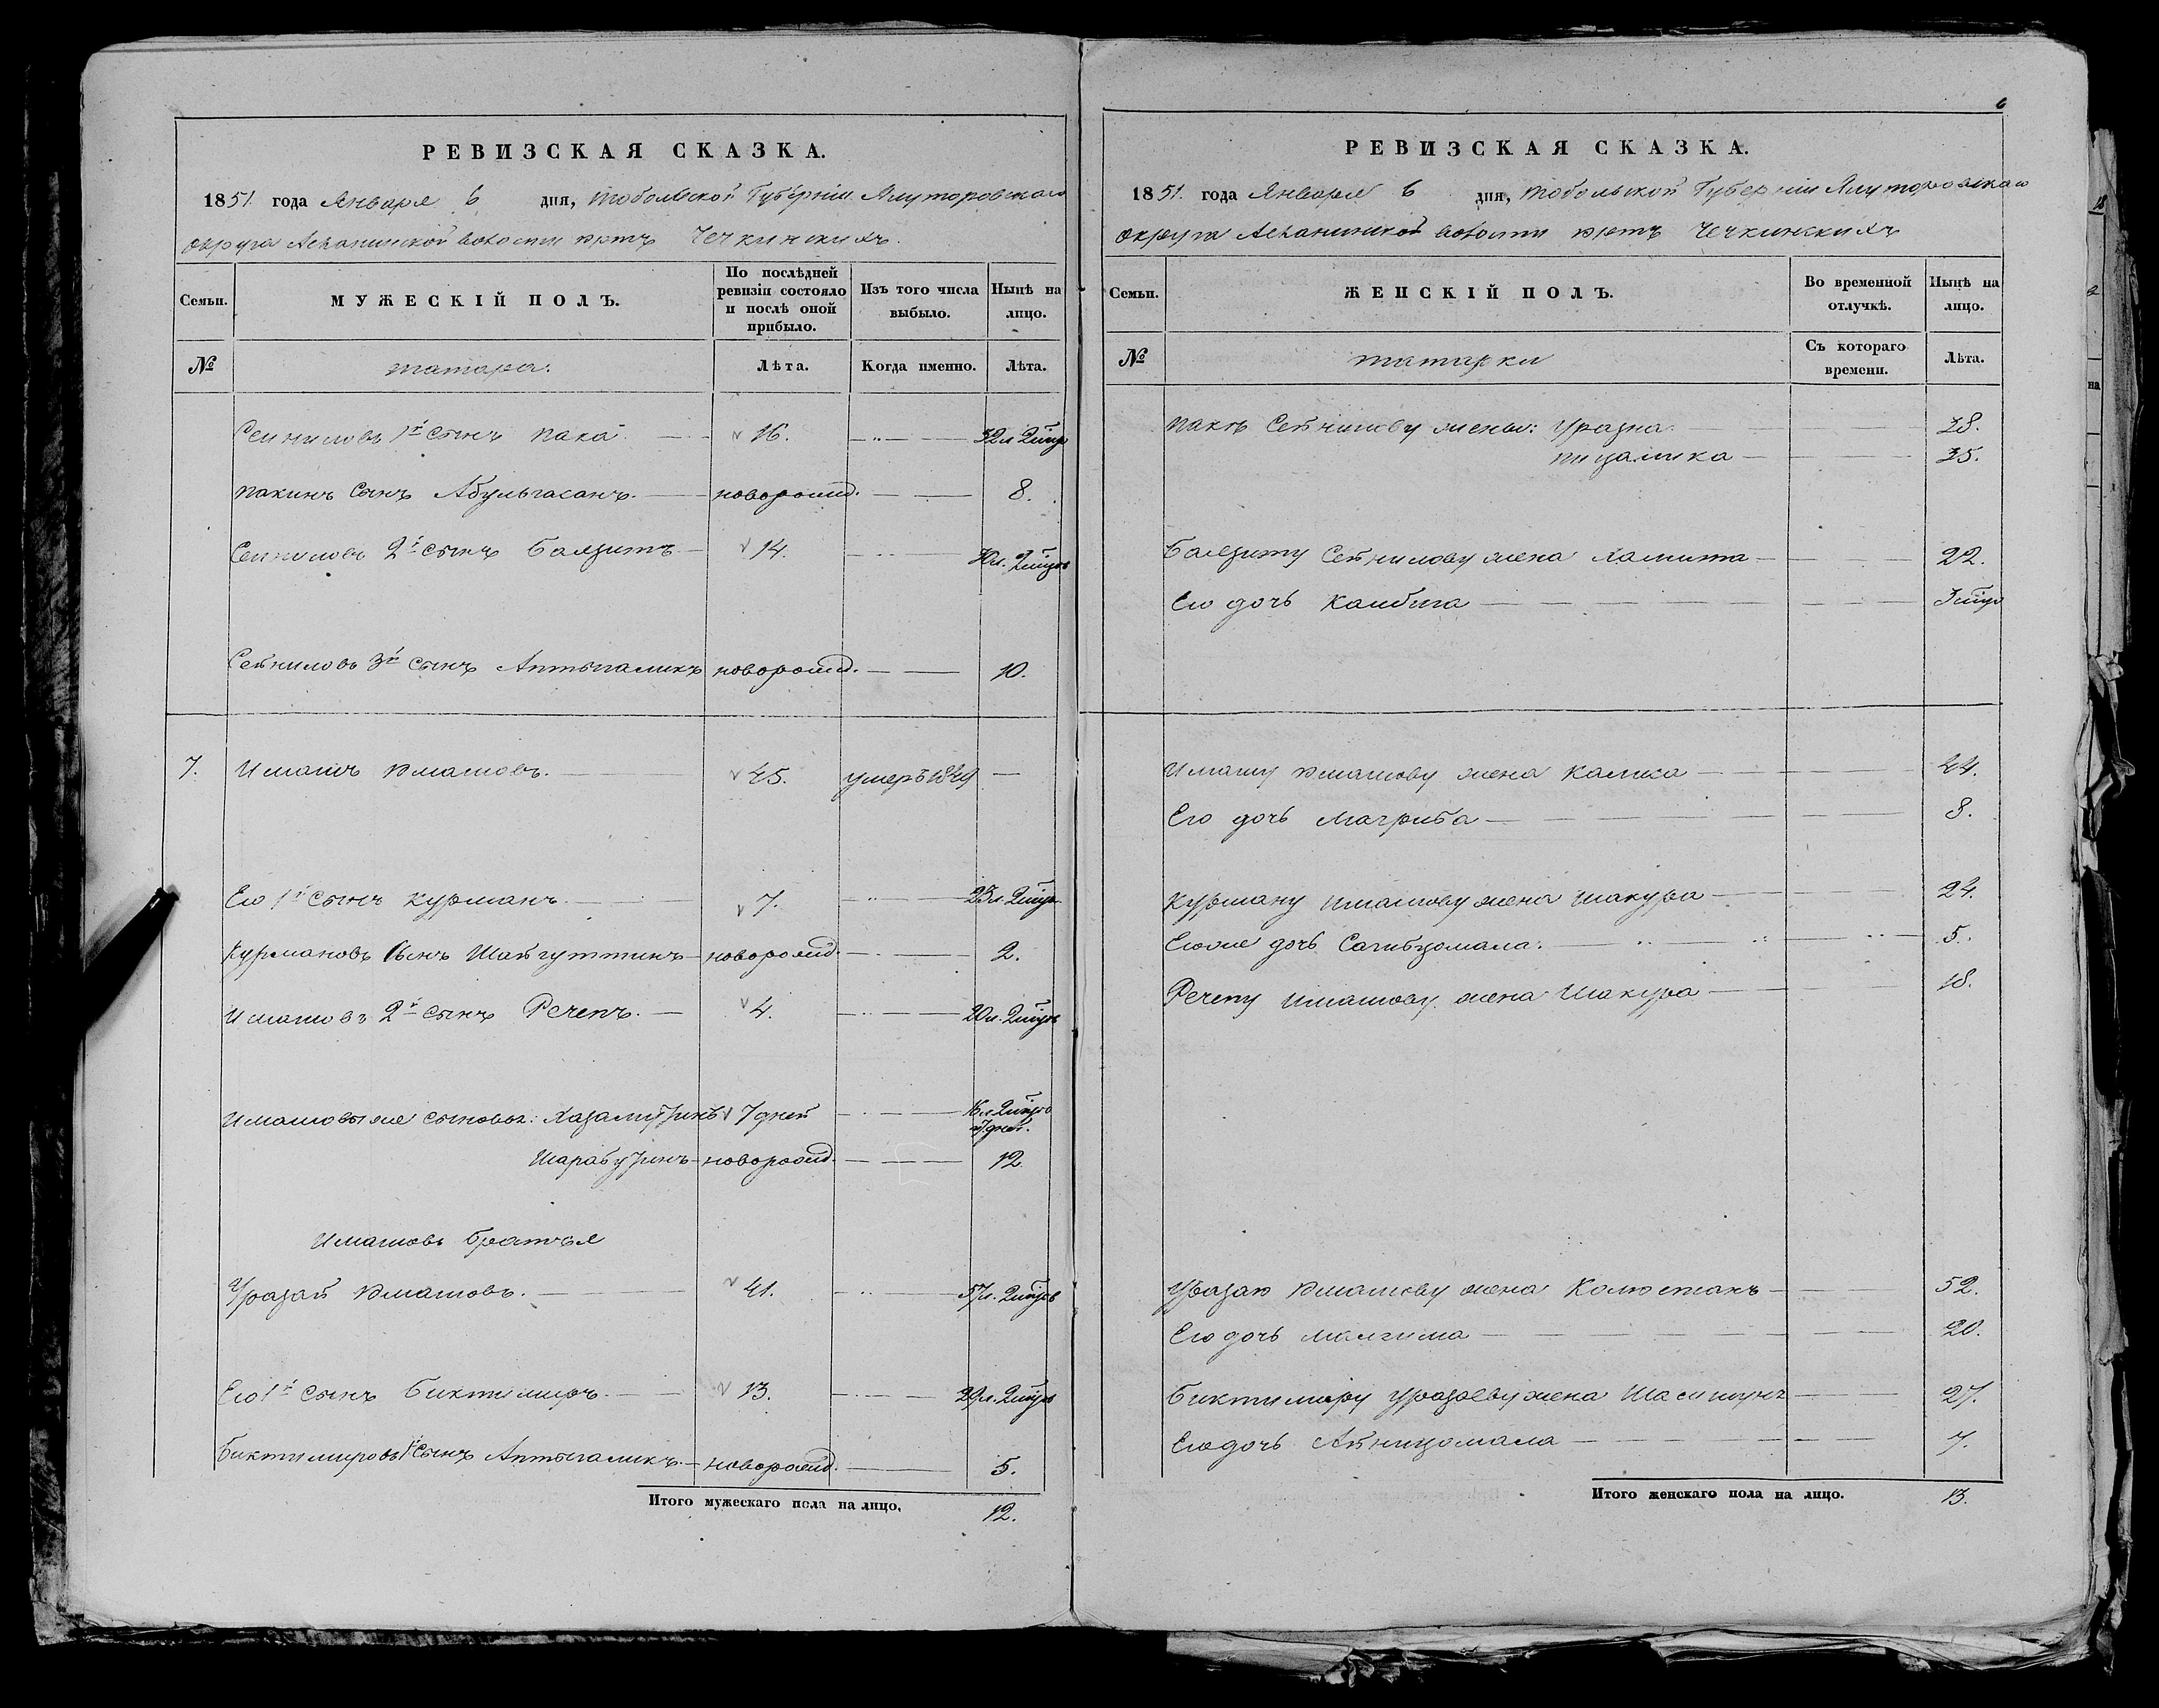 РЕВИЗСКАЯ СКАЗКА.
1851. года Января 6 дня, Тобольской Губерніи Ялуторовскаго
округа Асланинской волости юртъ Чечкинскихъ.
Семьи.
МУЖЕСКІЙ ПОЛЪ.
По послѣдней ревизіи состояло и послѣ оной прибыло.
Изъ того числа выбыло.
Нынѣ на лицо.
№
татара.
Лѣта.
Когда именно.
Лѣта.
1й сынъ Пака 16. 32
Пакинъ сынъ Абульгасанъ. новорожд. 8.
2й сынъ Баязитъ 14. 30
3й сынъ Аптыгаликъ новорожд. 10.
7. Имашъ Юмашовъ. 45. умеръ 1849
Его 1й сынъ Курманъ. 7. 23
Курмановъ сынъ Шайгуттинъ новорожд. 2.
Имашовъ 2й сынъ Речепъ. 4. 20
Имашовы же сыновья: 7 дней 16
7 дней.
новорожд. 12.
Имашовы братья
Уразай Юмашовъ. 41. 57
Его 1й сынъ Биктимиръ. 13. 29
Биктимировъ 1й сынъ Аптыгаликъ. новорожд. 5.
Итого мужескаго пола на лицо. 12.
6
РЕВИЗСКАЯ СКАЗКА.
1851. года Января 6 дня, Тобольской Губерніи Ялуторовскаго
округа Асланинской волости юртъ Чечкинскихъ
Семьи.
ЖЕНСКІЙ ПОЛЪ.
Во временной отлучкѣ.
Нынѣ на лицо.
№
татарки
Съ котораго времени.
Лѣта.
жены: Уразна 28.
25.
Баязиту жена Хамита 22.
Его дочь
Имашу Юмашову жена Калика 44.
Его дочь Магриба 8.
Курману Имашову жена Шакура 24.
Его же дочь Сагибзомала. 5.
Речепу Имашову жена Шакура 18.
Уразаю Юмашову жена 52.
Его дочь 20.
Биктимиру Уразаеву жена 27.
Его дочь 7.
Итого женскаго пола на лицо. 13.